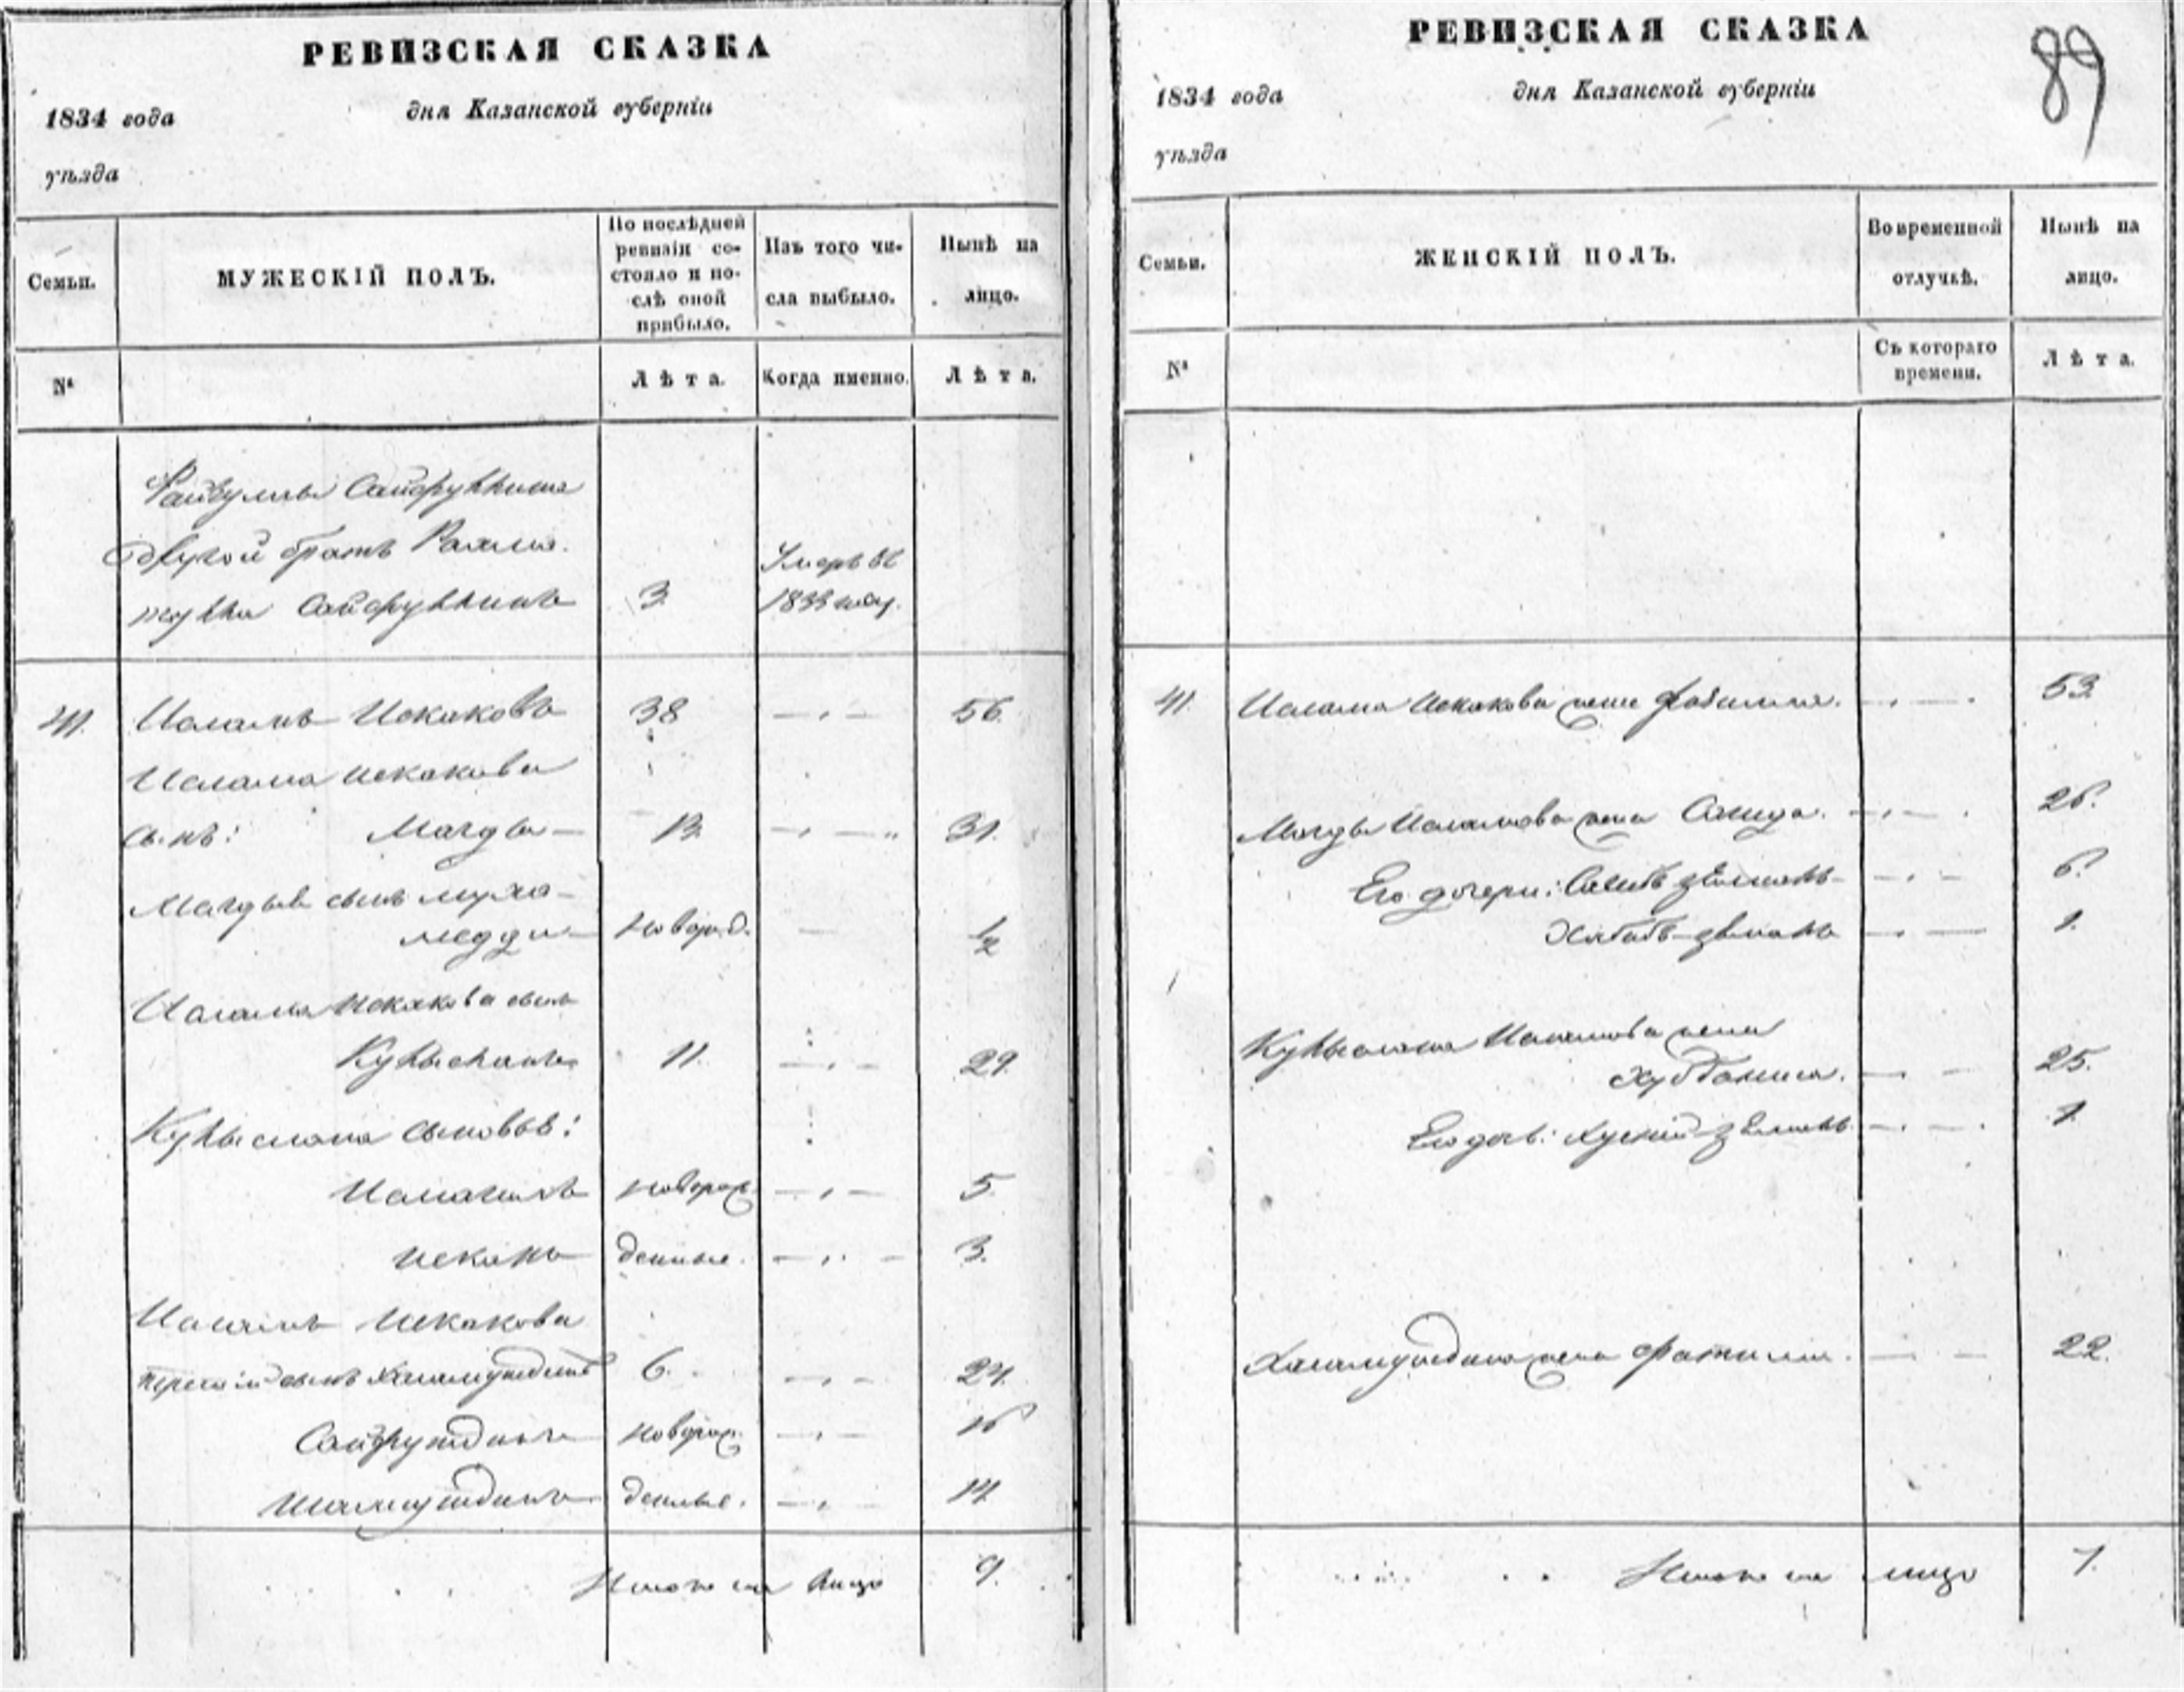 РЕВИЗСКАЯ СКАЗКА
1834 года
дня Казанской губерніи
уѣзда
Семьи.
МУЖЕСКІЙ ПОЛЪ.
По послѣдней ревизіи состояло и послѣ оной прибыло.
Изъ того числа выбыло.
Нынѣ на лицо.
№
Лѣта.
Когда именно.
Лѣта.
Сайфуллина
другой братъ Рахма-
тулла Сайфуллинъ 3 Умеръ въ 1833 году.
41. Исламъ Искаковъ 38 56.
Ислама Искакова
сынъ: Магды 13. 31.
Магдыя сынъ Муха-
медди новорожд. ½
Ислама Искакова сынъ
11. 29.
сыновья:
Исмагилъ новорож- 5.
Искакъ денные. 3.
Исламъ Искакова
третій сынъ 6. 24.
Сайфутдинъ новорож- 16
Шамсутдинъ денные. 14.
Итого на лицо 9.
РЕВИЗСКАЯ СКАЗКА
89
1834 года
дня Казанской губерніи
уѣзда
Семьи.
ЖЕНСКІЙ ПОЛЪ.
Во временной отлучкѣ.
Нынѣ на лицо.
№
Съ котораго времени.
Лѣта.
41. Ислама Искакова жена 53.
Магды Исламова жена 26.
Его дочери: 6.
1.
Исламова жена
25.
Его дочь: 1.
жена Фатима. 22.
Итого на лицо 7.